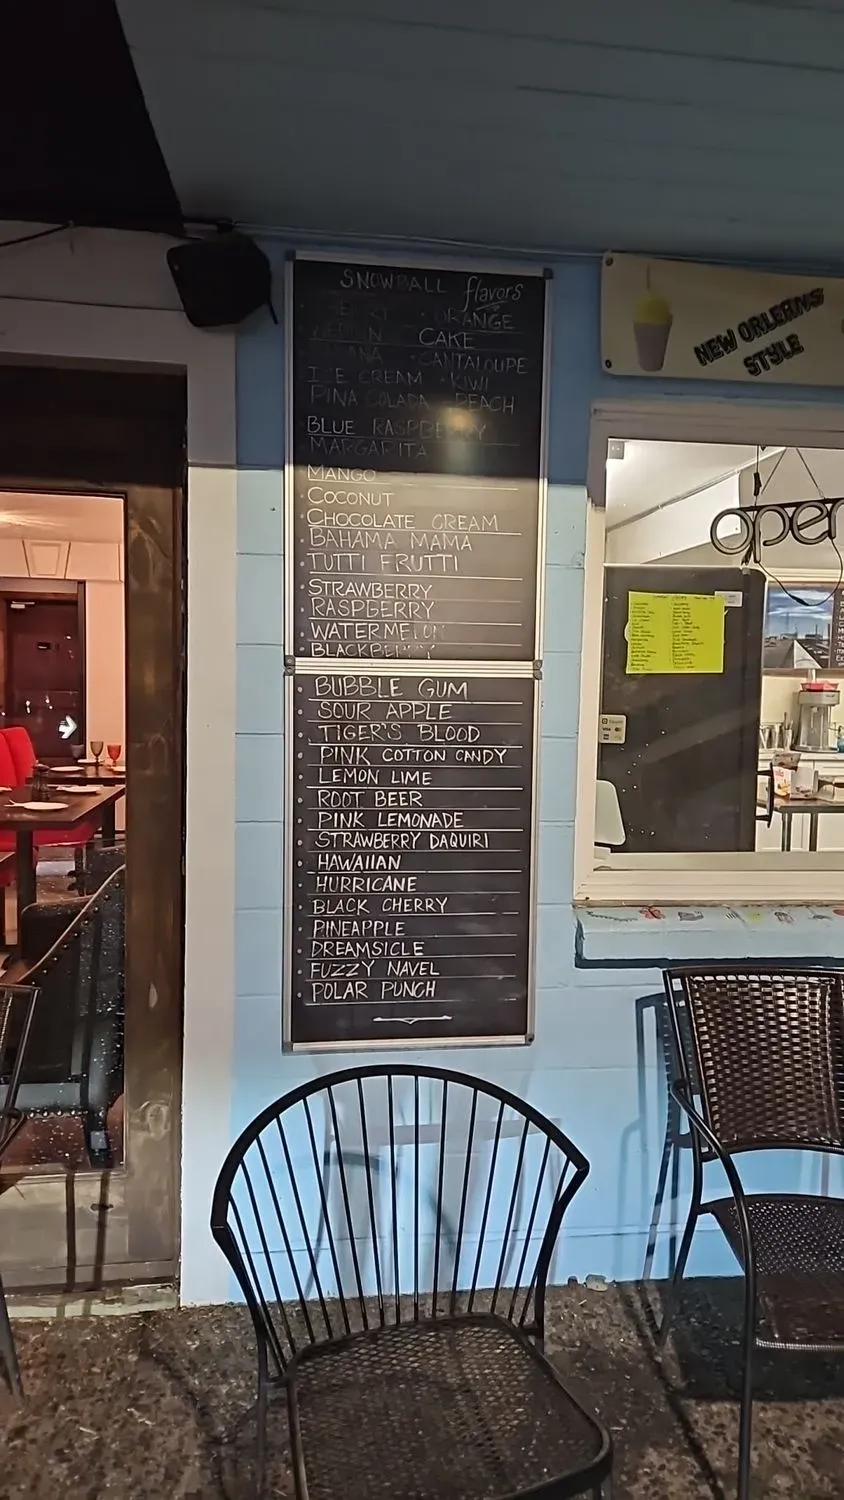 SNOWBALL flavors
ORANGE
CAKE
CANTALOUPE
ICE CREAM • KIWI
PINA COLADA • PEACH
BLUE RASPBERRY
MARGARITA
MANGO
COCONUT
CHOCOLATE CREAM
BAHAMA MAMA
TUTTI FRUTTI
STRAWBERRY
RASPBERRY
WATERMELON
BLACKBERRY
BUBBLE GUM
SOUR APPLE
TIGER'S BLOOD
PINK COTTON CANDY
LEMON LIME
ROOT BEER
PINK LEMONADE
STRAWBERRY DAQUIRI
HAWAIIAN
HURRICANE
BLACK CHERRY
PINEAPPLE
DREAMSICLE
FUZZY NAVEL
POLAR PUNCH
NEW ORLEANS
STYLE
open